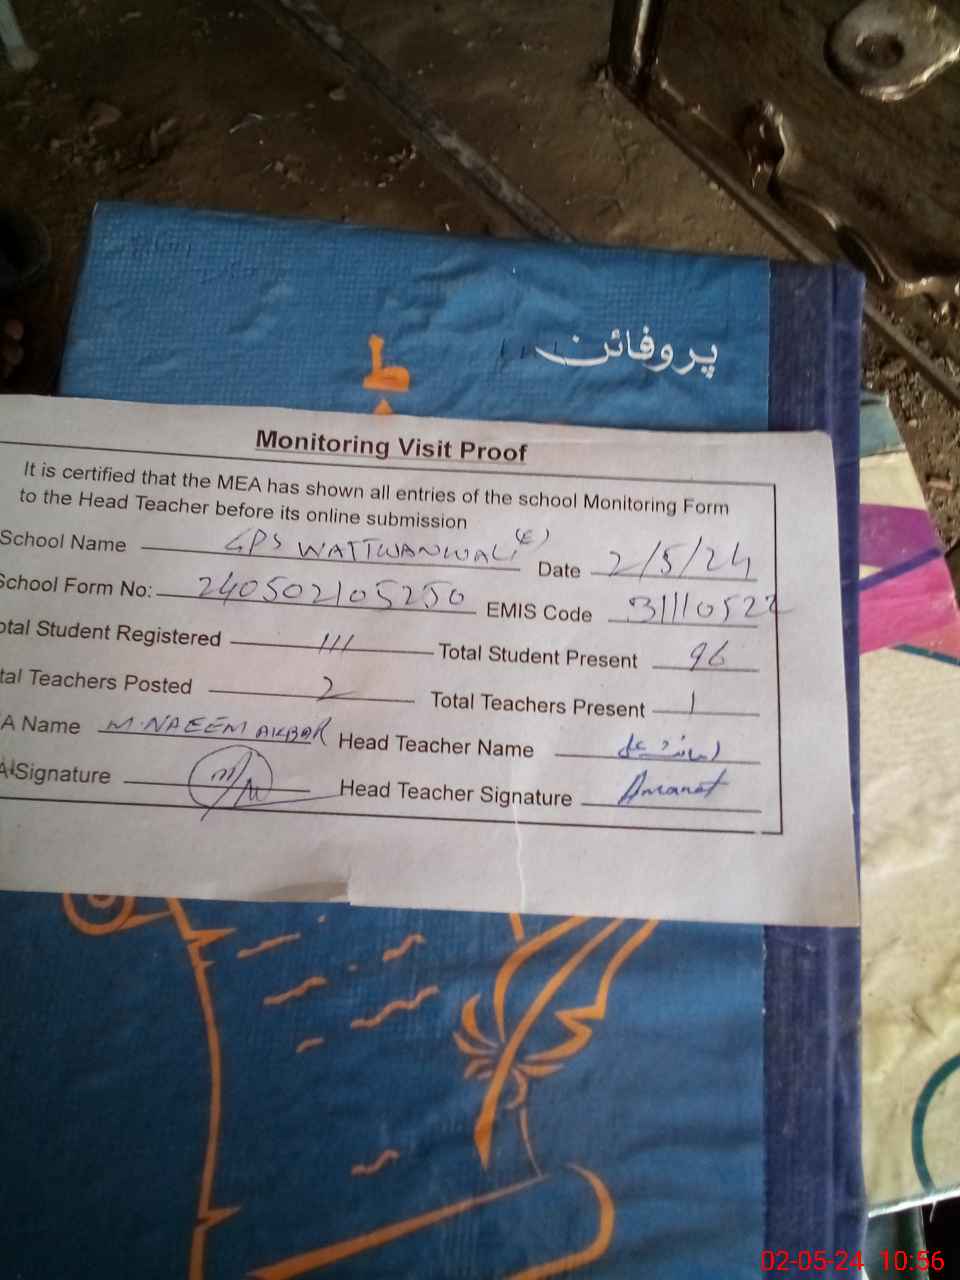 پروفائن
ط
Monitoring Visit Proof
It is certified that the MEA has shown all entries of the school Monitoring Form
to the Head Teacher before its online submission
School Name GPS WATTWANWALI (E) Date 2/5/24
School Form No: 240502105250 EMIS Code 31110522
otal Student Registered 111 Total Student Present 96
tal Teachers Posted 2 Total Teachers Present 1
A Name M. NAEEM AKBAR Head Teacher Name امانت علی
A Signature Head Teacher Signature Amanat
02-05-24 10:56